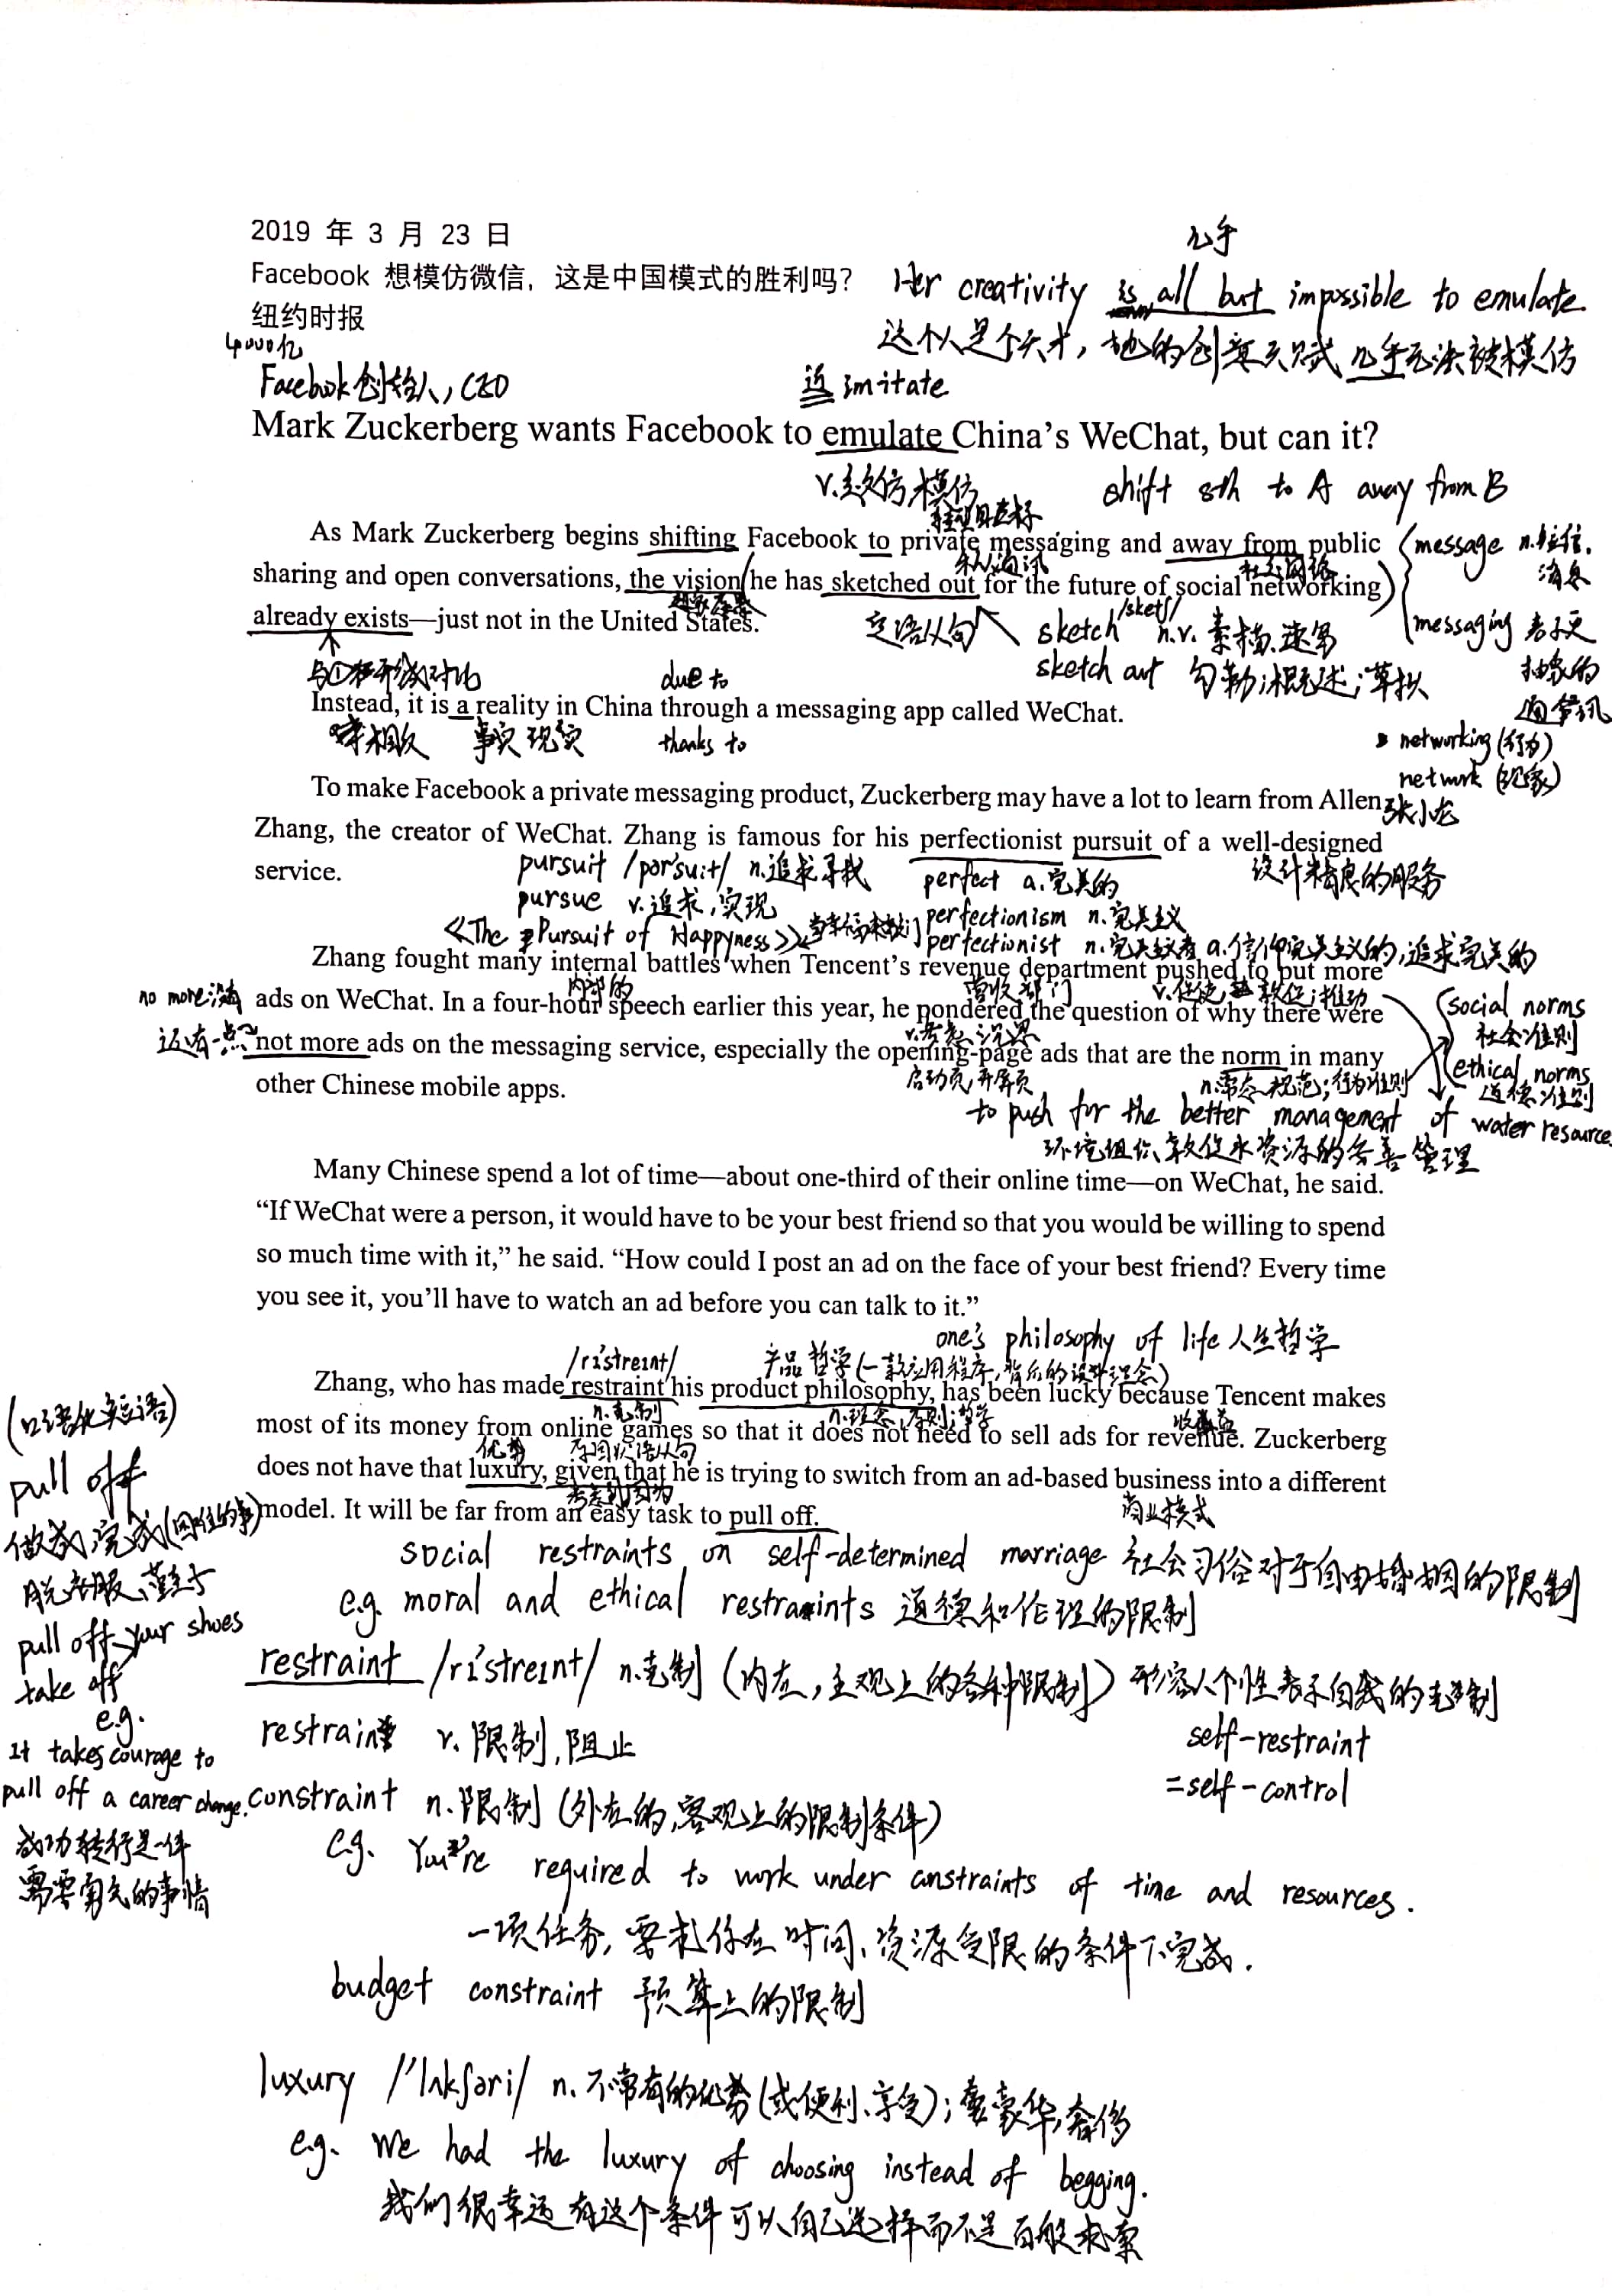 2019 年 3 月 23 日
几乎
Facebook 想模仿微信，这是中国模式的胜利吗？
Her creativity is all but impossible to emulate.
纽约时报
这个人是个天才，她的创意天赋几乎无法被模仿
4000亿
Facebook创始人，CEO
近 imitate
Mark Zuckerberg wants Facebook to emulate China's WeChat, but can it?
v.效仿，模仿
shift sth to A away from B
As Mark Zuckerberg begins shifting Facebook to private messaging and away from public
私人通讯
社交网络
sharing and open conversations, the vision he has sketched out for the future of social networking
already exists—just not in the United States.
定语从句
message n.短信，
消息
messaging 表示更
抽象的
通讯
sketch /sketʃ/ n.v. 素描、速写
sketch out 勾勒；概述；草拟
due to
Instead, it is a reality in China through a messaging app called WeChat.
相反 事实 现实 thanks to
networking (行为)
network (现象)
To make Facebook a private messaging product, Zuckerberg may have a lot to learn from Allen
张小龙
Zhang, the creator of WeChat. Zhang is famous for his perfectionist pursuit of a well-designed
service.
设计精良的服务
pursuit /pər'suːt/ n.追求 寻找
pursue v.追求，实现
《The Pursuit of Happyness》当幸福来敲门
perfect a.完美的
perfectionism n.完美主义
perfectionist n.完美主义者 a.信仰完美主义的，追求完美的
Zhang fought many internal battles when Tencent's revenue department pushed to put more
内部的 营收部门 v.促使 敦促；推动
no more 没有
ads on WeChat. In a four-hour speech earlier this year, he pondered the question of why there were
v.考虑 沉思
还有一点
not more ads on the messaging service, especially the opening-page ads that are the norm in many
启动页，开屏页
n.常态，规范；行为准则
social norms
社会准则
ethical norms
道德准则
other Chinese mobile apps.
to push for the better management of water resource
环境组织敦促水资源的妥善管理
Many Chinese spend a lot of time—about one-third of their online time—on WeChat, he said.
“If WeChat were a person, it would have to be your best friend so that you would be willing to spend
so much time with it,” he said. “How could I post an ad on the face of your best friend? Every time
you see it, you'll have to watch an ad before you can talk to it.”
one's philosophy of life 人生哲学
/rɪ'streɪnt/
产品哲学(一款应用程序，背后的设计理念)
Zhang, who has made restraint his product philosophy, has been lucky because Tencent makes
n.克制
n.理念，原则；哲学
most of its money from online games so that it does not need to sell ads for revenue. Zuckerberg
优势 原因状语从句
does not have that luxury, given that he is trying to switch from an ad-based business into a different
考虑到，因为
商业模式
model. It will be far from an easy task to pull off.
(口语化短语)
pull off
做成，完成(困难的事)
脱衣服、鞋子
pull off your shoes
take off
e.g.
It takes courage to
pull off a career change.
成功转行是一件
需要勇气的事情
social restraints on self-determined marriage 社会习俗对于自由婚姻的限制
e.g. moral and ethical restraints 道德和伦理的限制
restraint /rɪ'streɪnt/ n.克制 (内在，主观上的各种限制) 形容人个性表示自我的克制
self-restraint
=self-control
restrain v. 限制，阻止
constraint n.限制 (外在的，客观上的限制条件)
e.g. You're required to work under constraints of time and resources.
一项任务，要求你在时间、资源受限的条件下完成.
budget constraint 预算上的限制
luxury /'lʌkʃəri/ n.不常有的优势(或便利、享受)；豪华，奢侈
e.g. We had the luxury of choosing instead of begging.
我们很幸运有这个条件可以自己选择而不是百般求索